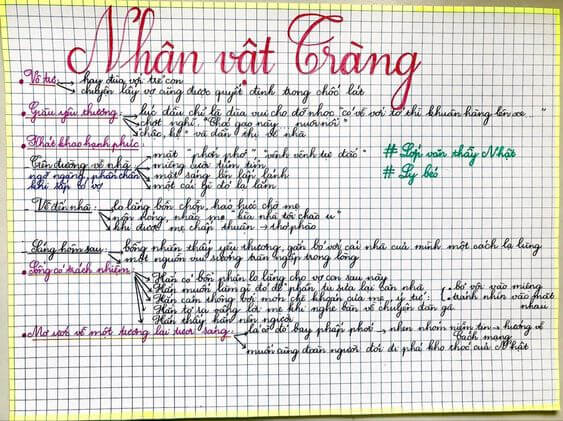 Nhân vật Tràng
• Vô tư: hay đùa với trẻ con
chuyện lấy vợ cũng được quyết định trong chốc lát
• Giàu yêu thương: lúc đầu chỉ là đùa vui cho đỡ nhọc "có về với tớ thì khuân hàng lên xe..."
chợt nghĩ: "Thóc gạo này nuôi nổi"
"chắc, kệ" và dẫn thị về nhà
• Khát khao hạnh phúc:
Trên đường về nhà
ngỡ ngàng, phấn chấn
khi sắp có vợ
mặt "phớn phở", "vênh vênh tự đắc"
miệng cười tủm tỉm
mắt sáng lên lấp lánh
một cái gì đó lạ lắm
# Lớp văn thầy Nhật
# Ly béo
- Về đến nhà: lo lắng bồn chồn, háo hức chờ mẹ
nôn nóng, nhắc mẹ "kìa nhà tôi chào u"
khi được mẹ chấp thuận → thở phào
- Sáng hôm sau: bỗng nhiên thấy yêu thương, gắn bó với cái nhà của mình một cách lạ lùng
một nguồn vui sướng tràn ngập trong lòng
• Sống có trách nhiệm
Hắn có bổn phận lo lắng cho vợ con sau này
Hắn muốn làm gì đó để phần tu sửa lại căn nhà
Hắn cảm thông với món chè khoán của mẹ, ý tứ:
. bỏ vội vào miệng
. tránh nhìn vào mặt nhau
Hắn tợ sợ vâng lời mẹ khi nghe bàn về chuyện đan gà
Hắn thấy hắn nên người
• Mơ ước về một tương lai tươi sáng: lá cờ đỏ bay phấp phới → nhen nhóm niềm tin → hướng về
cách mạng
muốn cùng đoàn người đói đi phá kho thóc của Nhật